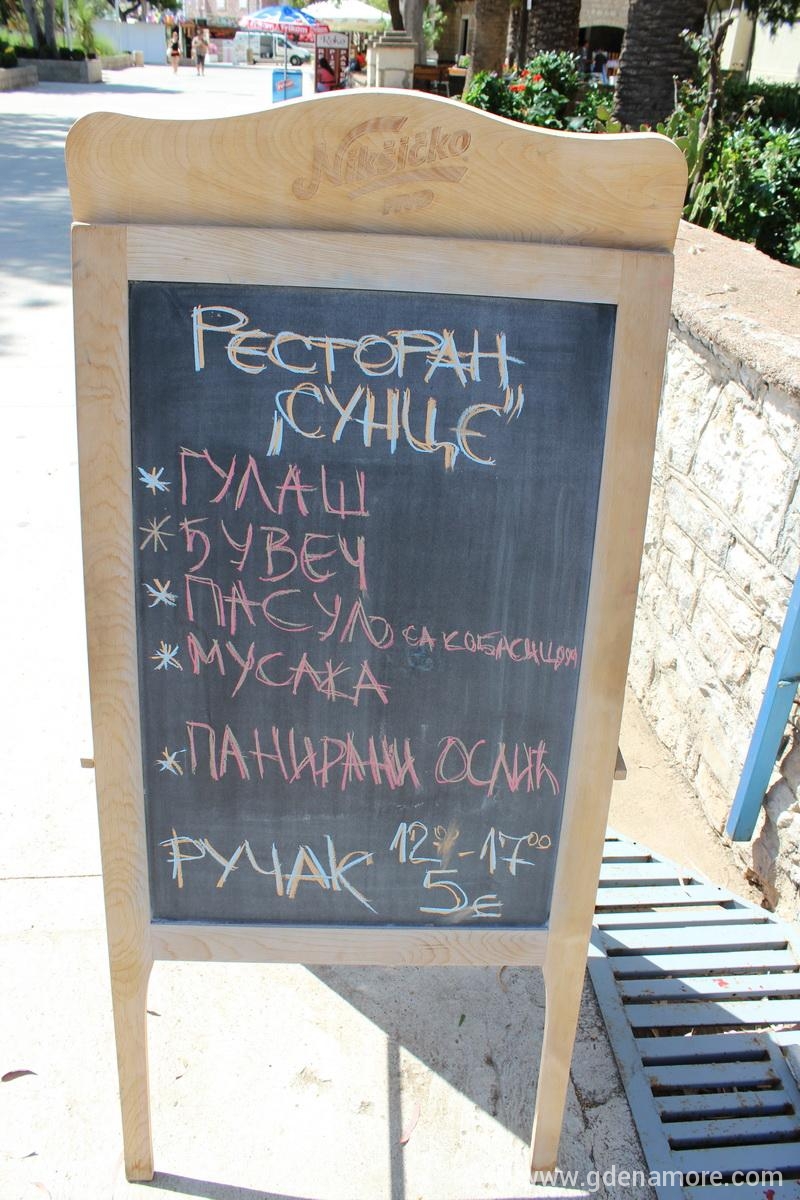 Nikšićko
PIVO
РЕСТОРАН
„СУНЦЕ”
* ГУЛАШ
* ЂУВЕЧ
* ПАСУЉ СА КОБАСИЦОМ
* МУСАКА
* ПАНИРАНИ ОСЛИЋ
РУЧАК 12⁰⁰-17⁰⁰
5€
www.gdenamore.com